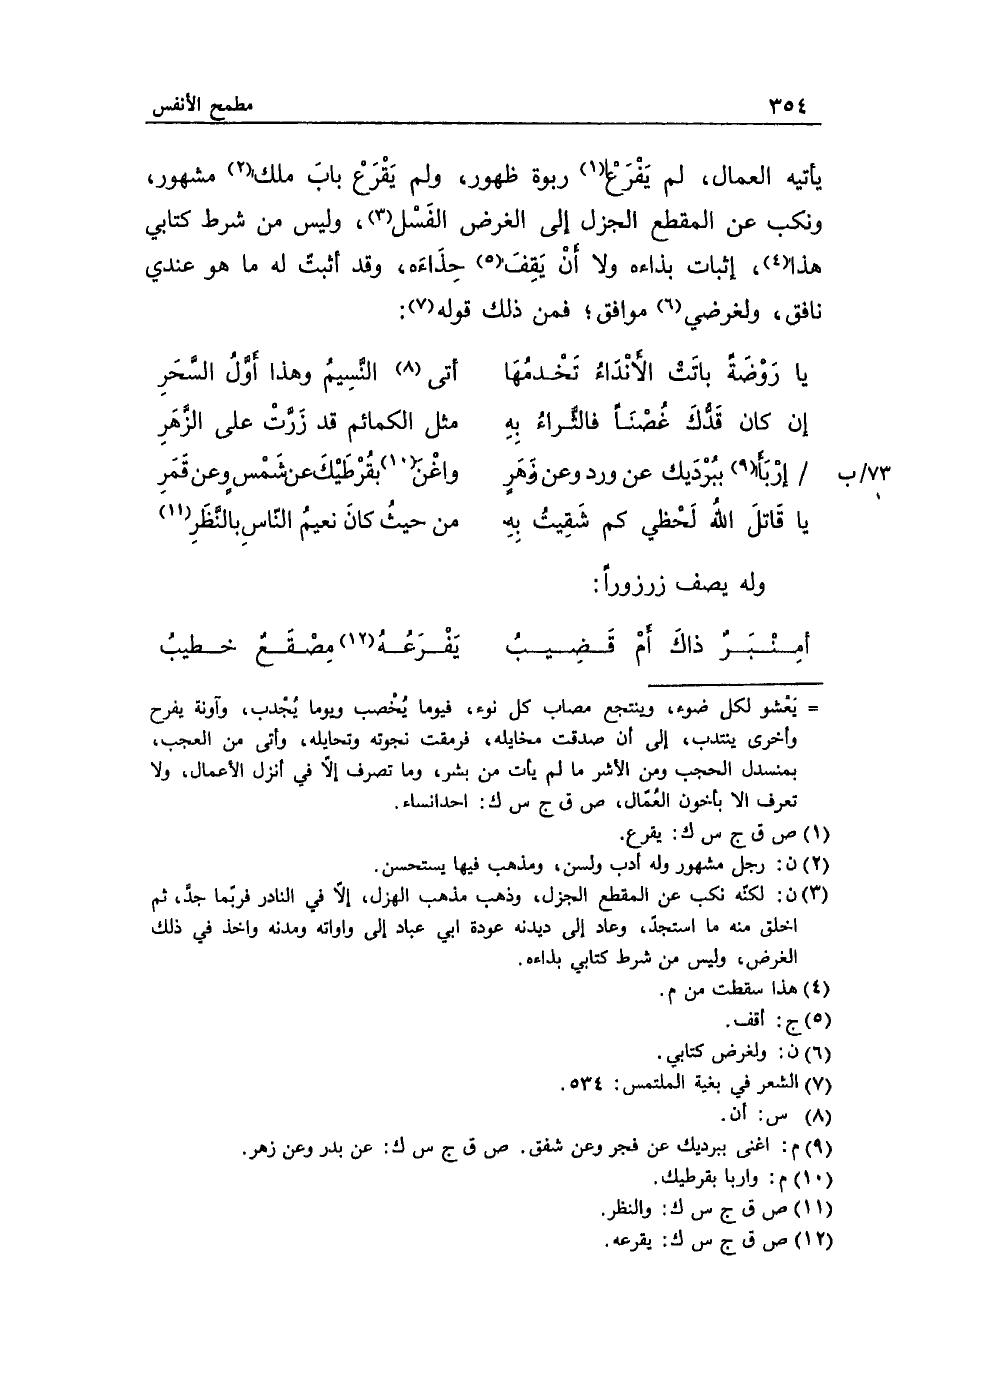 ٣٥٤ مطمح الأنفس
يأتيه العمال، لم يَفْرَعْ(١) ربوة ظهور، ولم يَقْرَعْ بابَ ملك(٢) مشهور،
ونكب عن المقطع الجزل إلى الغرض الفَسْل(٣)، وليس من شرط كتابي
هذا(٤)، إثبات بذاءه ولا أنْ يَقِفَ(٥) حِذَاءَه، وقد أثبتّ له ما هو عندي
نافق، ولغرضي(٦) موافق؛ فمن ذلك قوله(٧):
يا رَوْضَةً باتَتْ الأنْدَاءُ تَخْدمُهَا أتى(٨) النَّسِيمُ وهذا أَوَّلُ السَّحَرِ
إن كان قَدُّكَ غُصْنَاً فالثَّراءُ بِهِ مثل الكمائم قد زَرَّتْ على الزَّهَرِ
٧٣/ب / إرْبَأ(٩) بِبُرْدَيك عن ورد وعن زَهَرٍ واغْنَ(١٠) بقُرْطَيْكَ عن شَمْسٍ وعن قَمَرِ
يا قَاتلَ اللهُ لَحْظي كم شَقِيتُ بِهِ من حيثُ كانَ نعيمُ النّاسِ بالنَّظَرِ(١١)
وله يصف زرزوراً:
أمِنْبَرٌ ذاكَ أمْ قَضِيبُ يَفْرَعُهُ(١٢) مِصْقَعٌ خطيبُ
= يَعْشو لكل ضوء، وينتجع مصاب كل نوء، فيوما يُخْصب ويوما يُجْدب، وآونة يفرح
وأخرى ينتدب، إلى أن صدقت مخايله، فرمقت نجوته وتحايله، وأتى من العجب،
بمنسدل الحجب ومن الأشر ما لم يأت من بشر، وما تصرف إلّا في أنزل الأعمال، ولا
تعرف الا بأخون العُمّال، ص ق ج س ك: احدانساء.
(١) ص ق ج س ك: يقرع.
(٢) ن: رجل مشهور وله أدب ولسن، ومذهب فيها يستحسن.
(٣) ن: لكنّه نكب عن المقطع الجزل، وذهب مذهب الهزل، إلّا في النادر فربّما جدَّ، ثم
اخلق منه ما استجدّ، وعاد إلى ديدنه عودة ابي عباد إلى واواته ومدنه واخذ في ذلك
الغرض، وليس من شرط كتابي بذاءه.
(٤) هذا سقطت من م.
(٥) ج: أقف.
(٦) ن: ولغرض كتابي.
(٧) الشعر في بغية الملتمس: ٥٣٤.
(٨) س: أن.
(٩) م: اغنى ببرديك عن فجر وعن شفق. ص ق ج س ك: عن بدر وعن زهر.
(١٠) م: واربا بقرطيك.
(١١) ص ق ج س ك: والنظر.
(١٢) ص ق ج س ك: يقرعه.